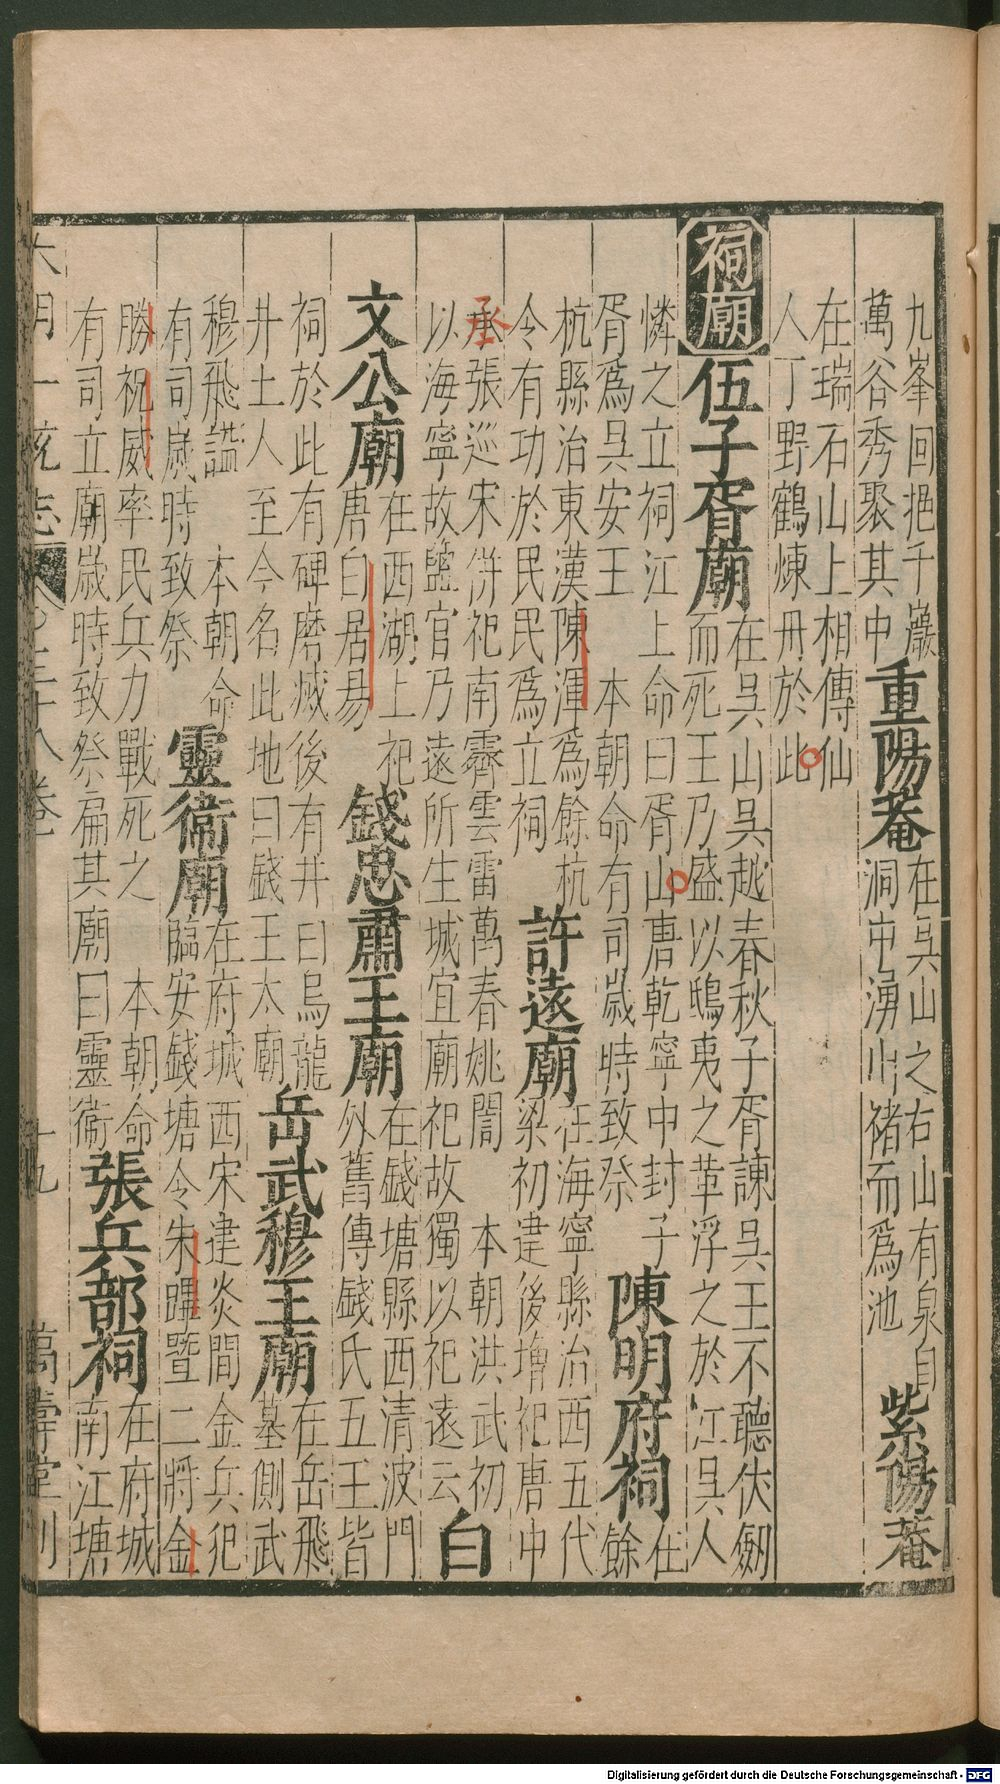 九峯回挹千巖
萬谷秀聚其中
重陽菴
在吳山之右山有泉自
洞中湧出瀦而爲池
紫陽菴
在瑞石山上相傳仙
人丁野鶴煉丹於此
祠廟
伍子胥廟
在吳山吳越春秋子胥諫吳王不聽伏劒
而死王乃盛以鴟夷之革浮之於江吳人
憐之立祠江上命曰胥山唐乾寧中封子
胥爲吳安王 本朝命有司歲時致祭
陳明府祠
在
餘
杭縣治東漢陳渾爲餘杭
令有功於民民爲立祠
許遠廟
在海寧縣治西五代
梁初建後增祀唐中
丞張巡宋併祀南霽雲雷萬春姚誾 本朝洪武初
以海寧故鹽官乃遠所生城宜廟祀故獨以祀遠云
白
文公廟
在西湖上祀
唐白居易
錢忠肅王廟
在錢塘縣西清波門
外舊傳錢氏五王皆
祠於此有碑磨滅後有井曰烏龍
井土人至今名此地曰錢王太廟
岳武穆王廟
在岳飛
墓側武
穆飛謚 本朝命
有司歲時致祭
靈衞廟
在府城西宋建炎間金兵犯
臨安錢塘令朱蹕暨二將金
勝祝威率民兵力戰死之 本朝命
有司立廟歲時致祭扁其廟曰靈衞
張兵部祠
在府城
南江塘
大明一統志 三十八卷 十九 萬壽堂刊
Digitalisierung gefördert durch die Deutsche Forschungsgemeinschaft - DFG